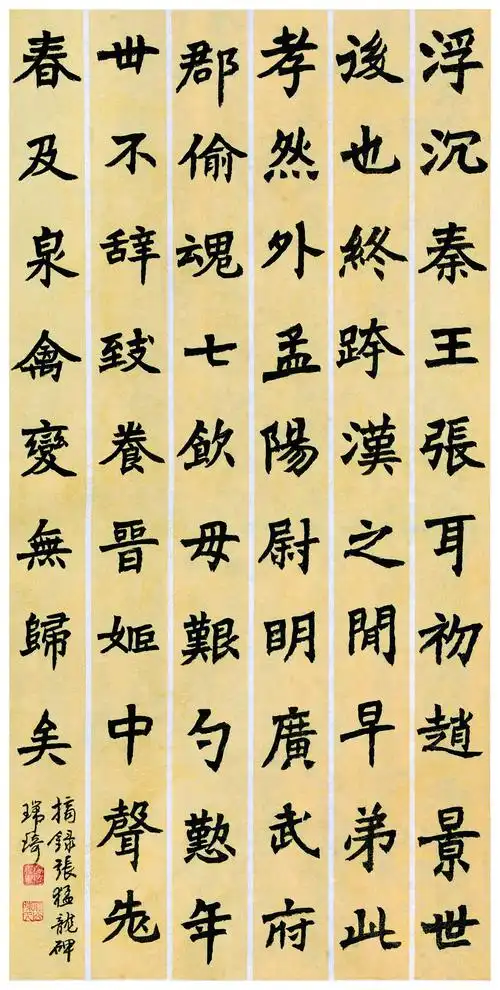 浮沉秦王張耳初趙景世
後也終跨漢之聞早弟此
孝然外孟陽尉明廣武府
郡偷魂七飲毋艱勺懃年
世不辞致養晉姬中聲先
春及泉禽變無歸矣
摘錄張猛龍碑
瑞琦